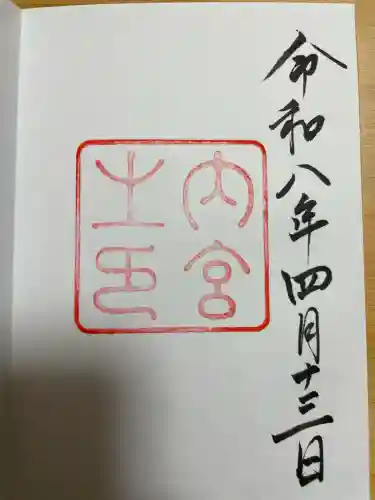 令和八年四月十三日
内宮
之印